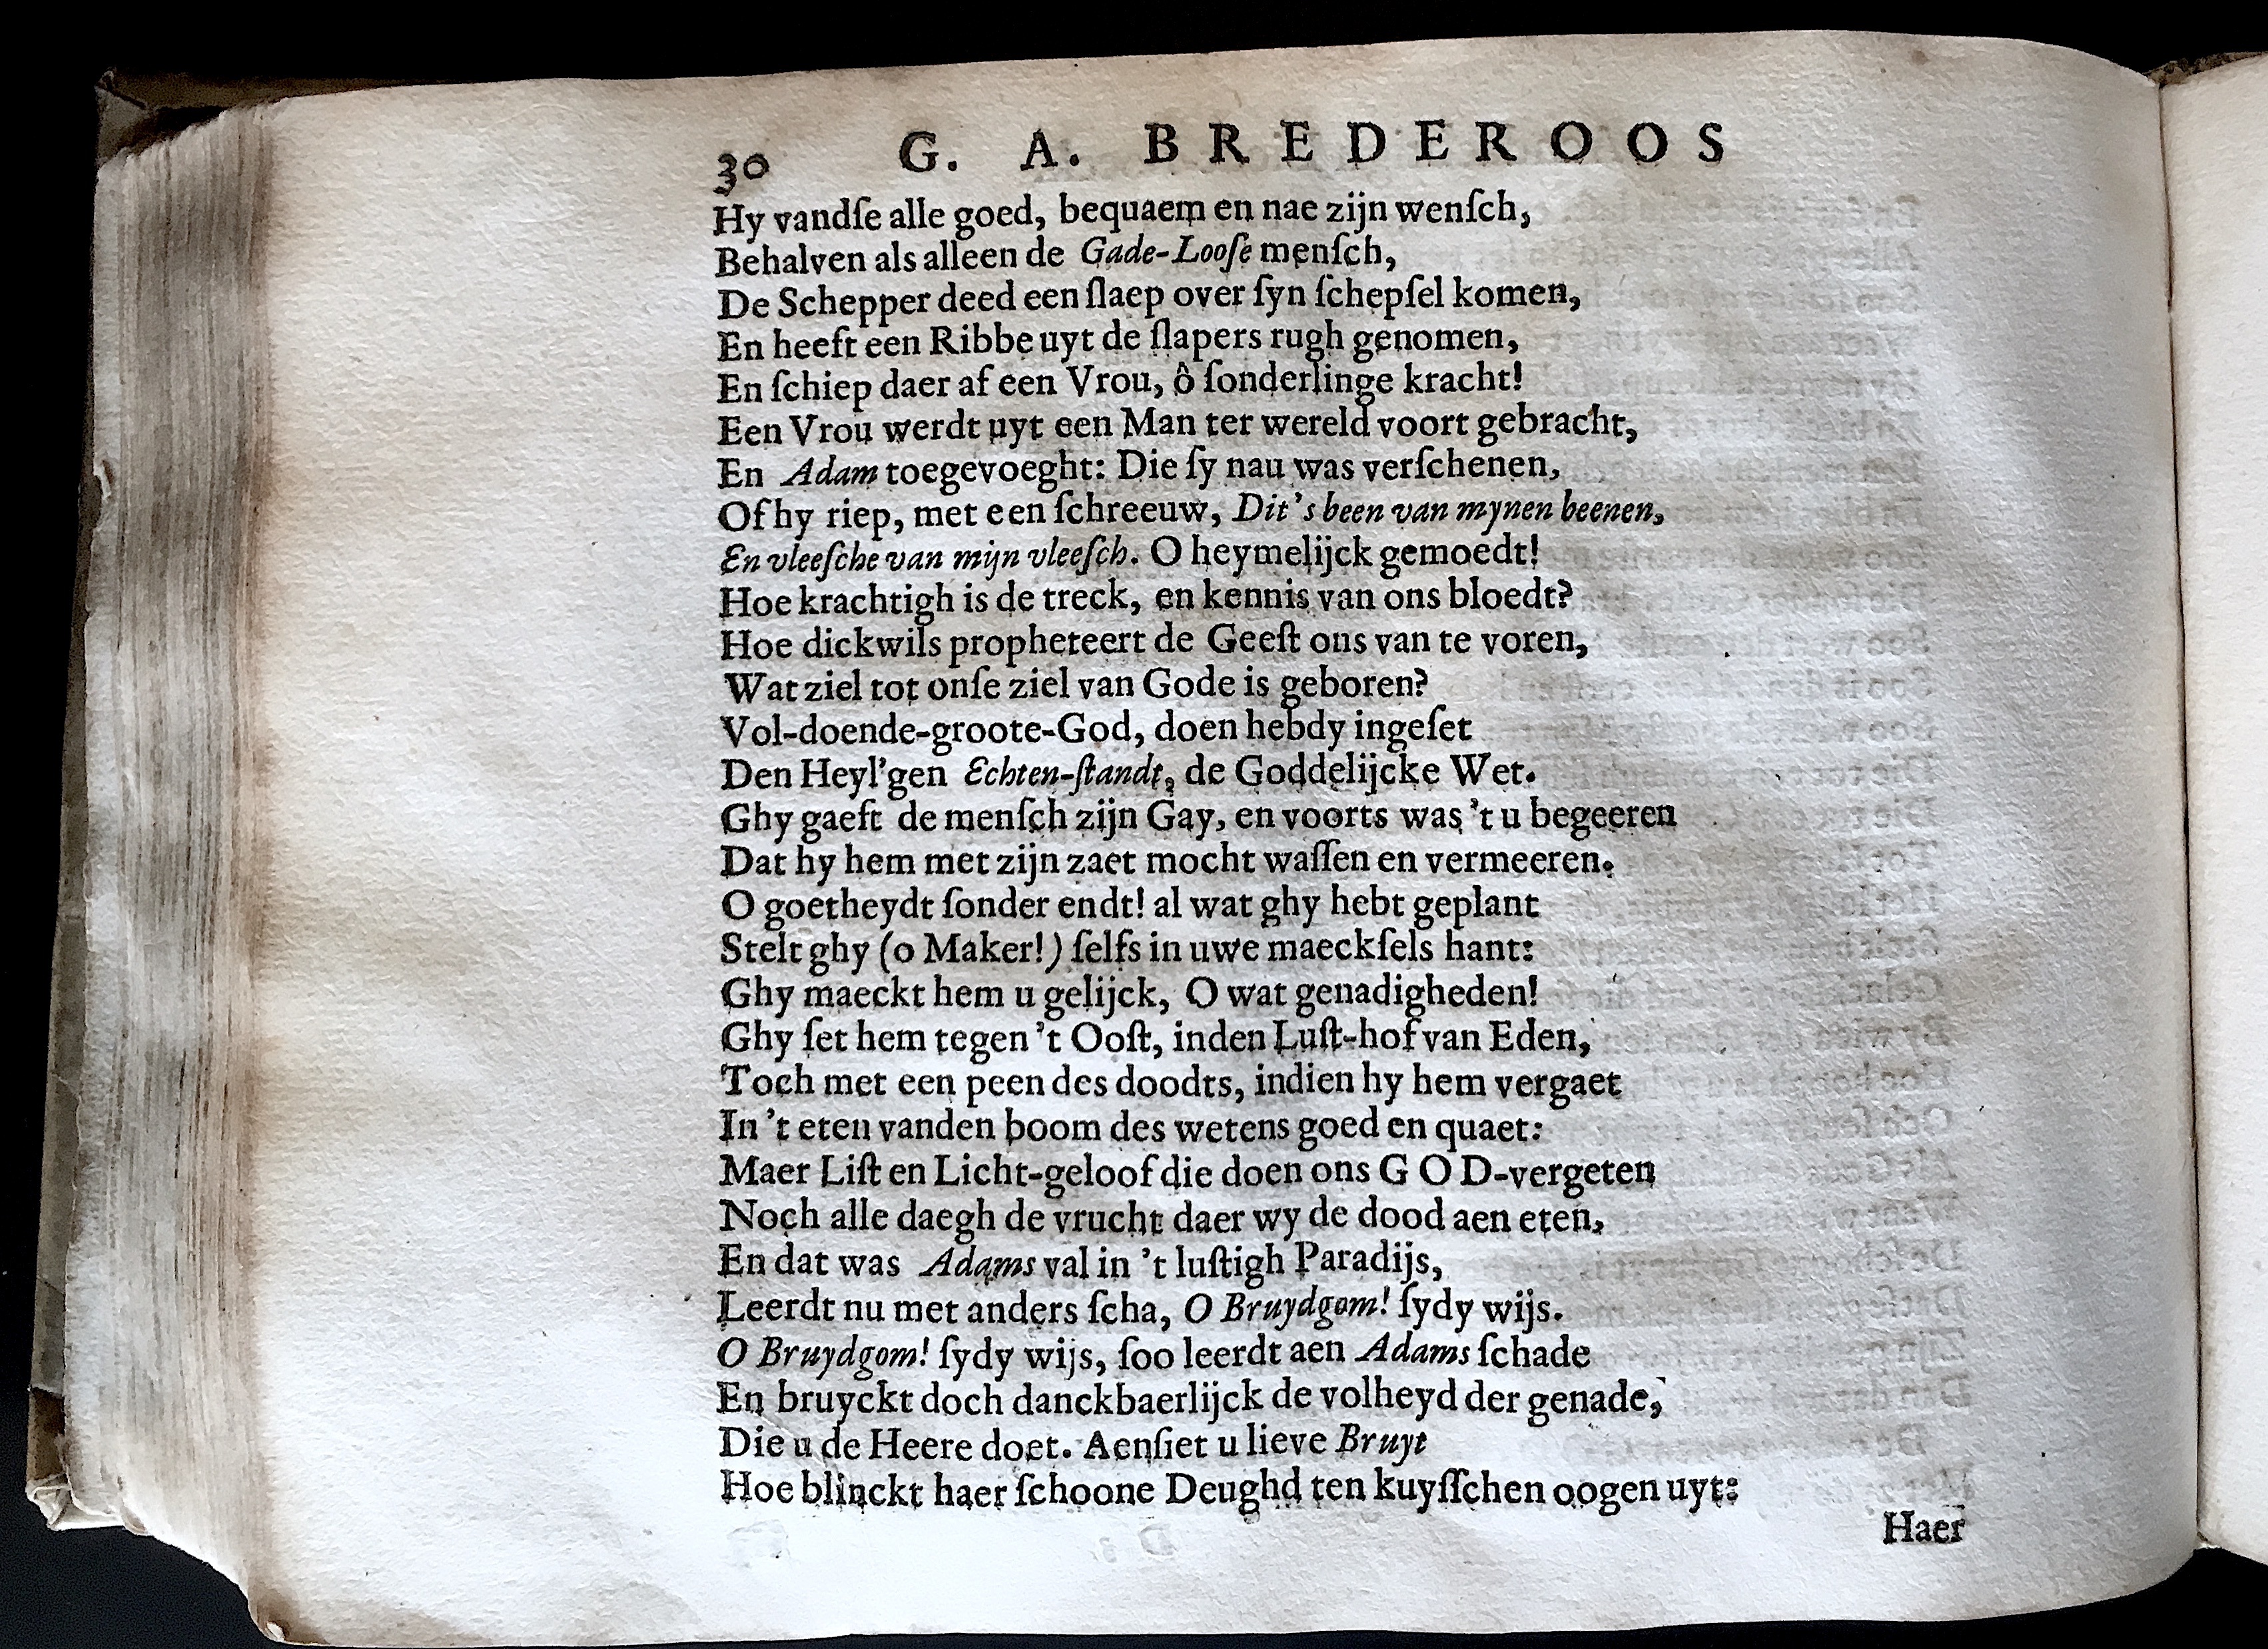 30 G. A. BREDEROOS
Hy vandſe alle goed, bequaem en nae zijn wenſch,
Behalven als alleen de Gade-Looſe menſch,
De Schepper deed een ſlaep over ſyn ſchepſel komen,
En heeft een Ribbe uyt de ſlapers rugh genomen,
En ſchiep daer af een Vrou, ô ſonderlinge kracht!
Een Vrou werdt uyt een Man ter wereld voort gebracht,
En Adam toegevoeght: Die ſy nau was verſchenen,
Of hy riep, met een ſchreeuw, Dit's been van mynen beenen,
En vleeſche van mijn vleeſch. O heymelijck gemoedt!
Hoe krachtigh is de treck, en kennis van ons bloedt?
Hoe dickwils propheteert de Geeſt ons van te voren,
Wat ziel tot onſe ziel van Gode is geboren?
Vol-doende-groote-God, doen hebdy ingeſet
Den Heyl'gen Echten-ſtandt, de Goddelijcke Wet.
Ghy gaeft de menſch zijn Gay, en voorts was 't u begeeren
Dat hy hem met zijn zaet mocht waſſen en vermeeren.
O goetheydt ſonder endt! al wat ghy hebt geplant
Stelt ghy (o Maker!) ſelfs in uwe maeckſels hant:
Ghy maeckt hem u gelijck, O wat genadigheden!
Ghy ſet hem tegen 't Ooſt, inden Luſt-hof van Eden,
Toch met een peen des doodts, indien hy hem vergaet
In 't eten vanden boom des wetens goed en quaet:
Maer Liſt en Licht-geloof die doen ons GOD-vergeten
Noch alle daegh de vrucht daer wy de dood aen eten,
En dat was Adams val in 't luſtigh Paradijs,
Leerdt nu met anders ſcha, O Bruydgom! ſydy wijs.
O Bruydgom! ſydy wijs, ſoo leerdt aen Adams ſchade
En bruyckt doch danckbaerlijck de volheyd der genade,
Die u de Heere doet. Aenſiet u lieve Bruyt
Hoe blinckt haer ſchoone Deughd ten kuyſſchen oogen uyt:
Haer